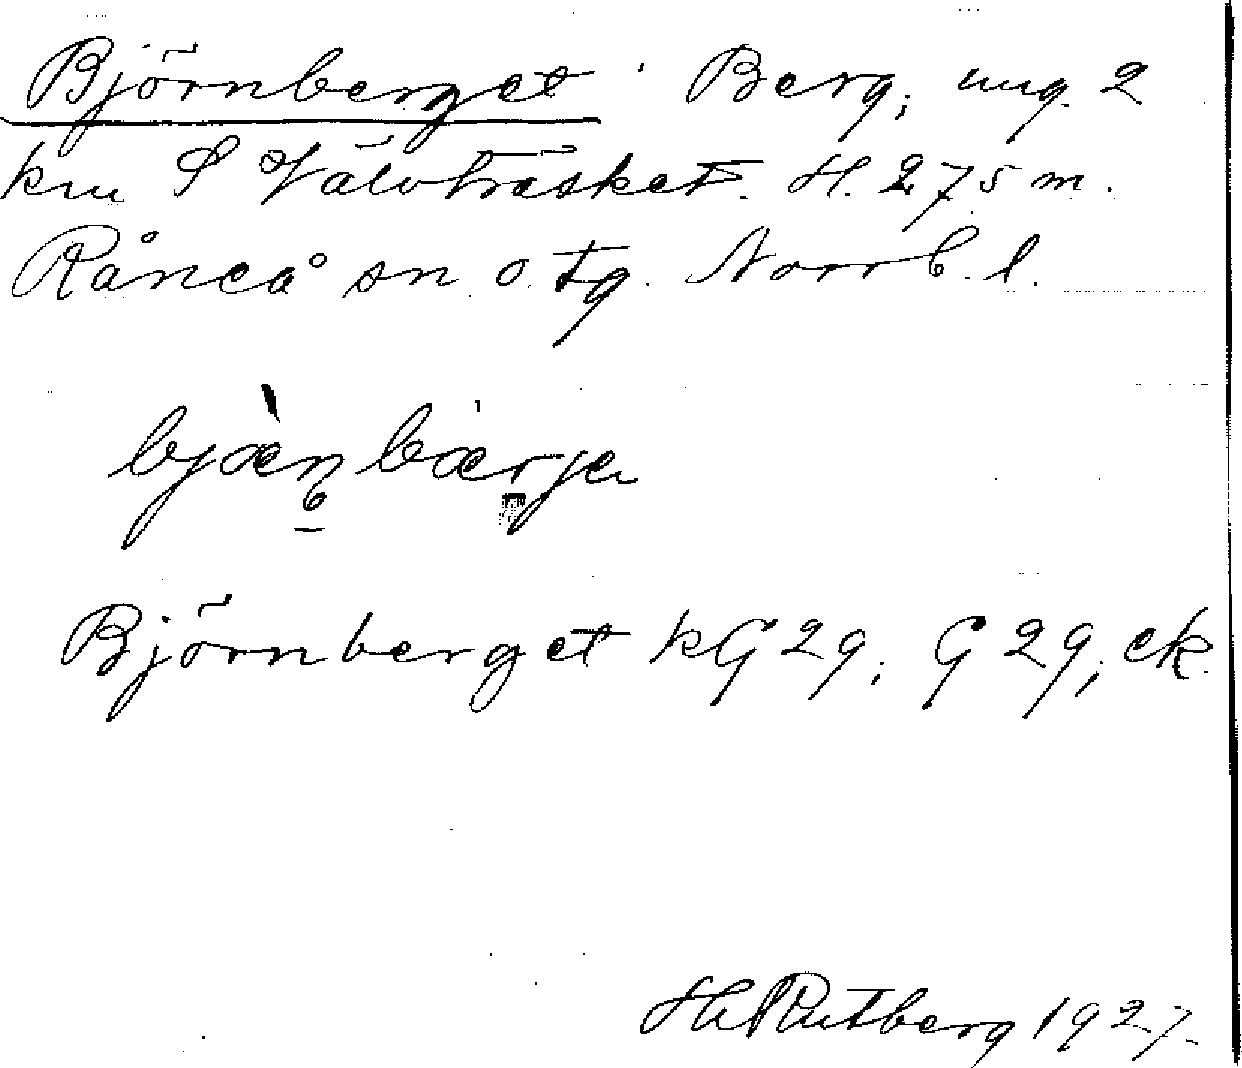 Björnberget. Berg, ung. 2
km S Välvträsket. H. 275 m.
Råneå sn o. tg. Norrb. l.
bjæ̀n̥bærje
Björnberget kG29; G29; ek.
H Rutberg 1927.